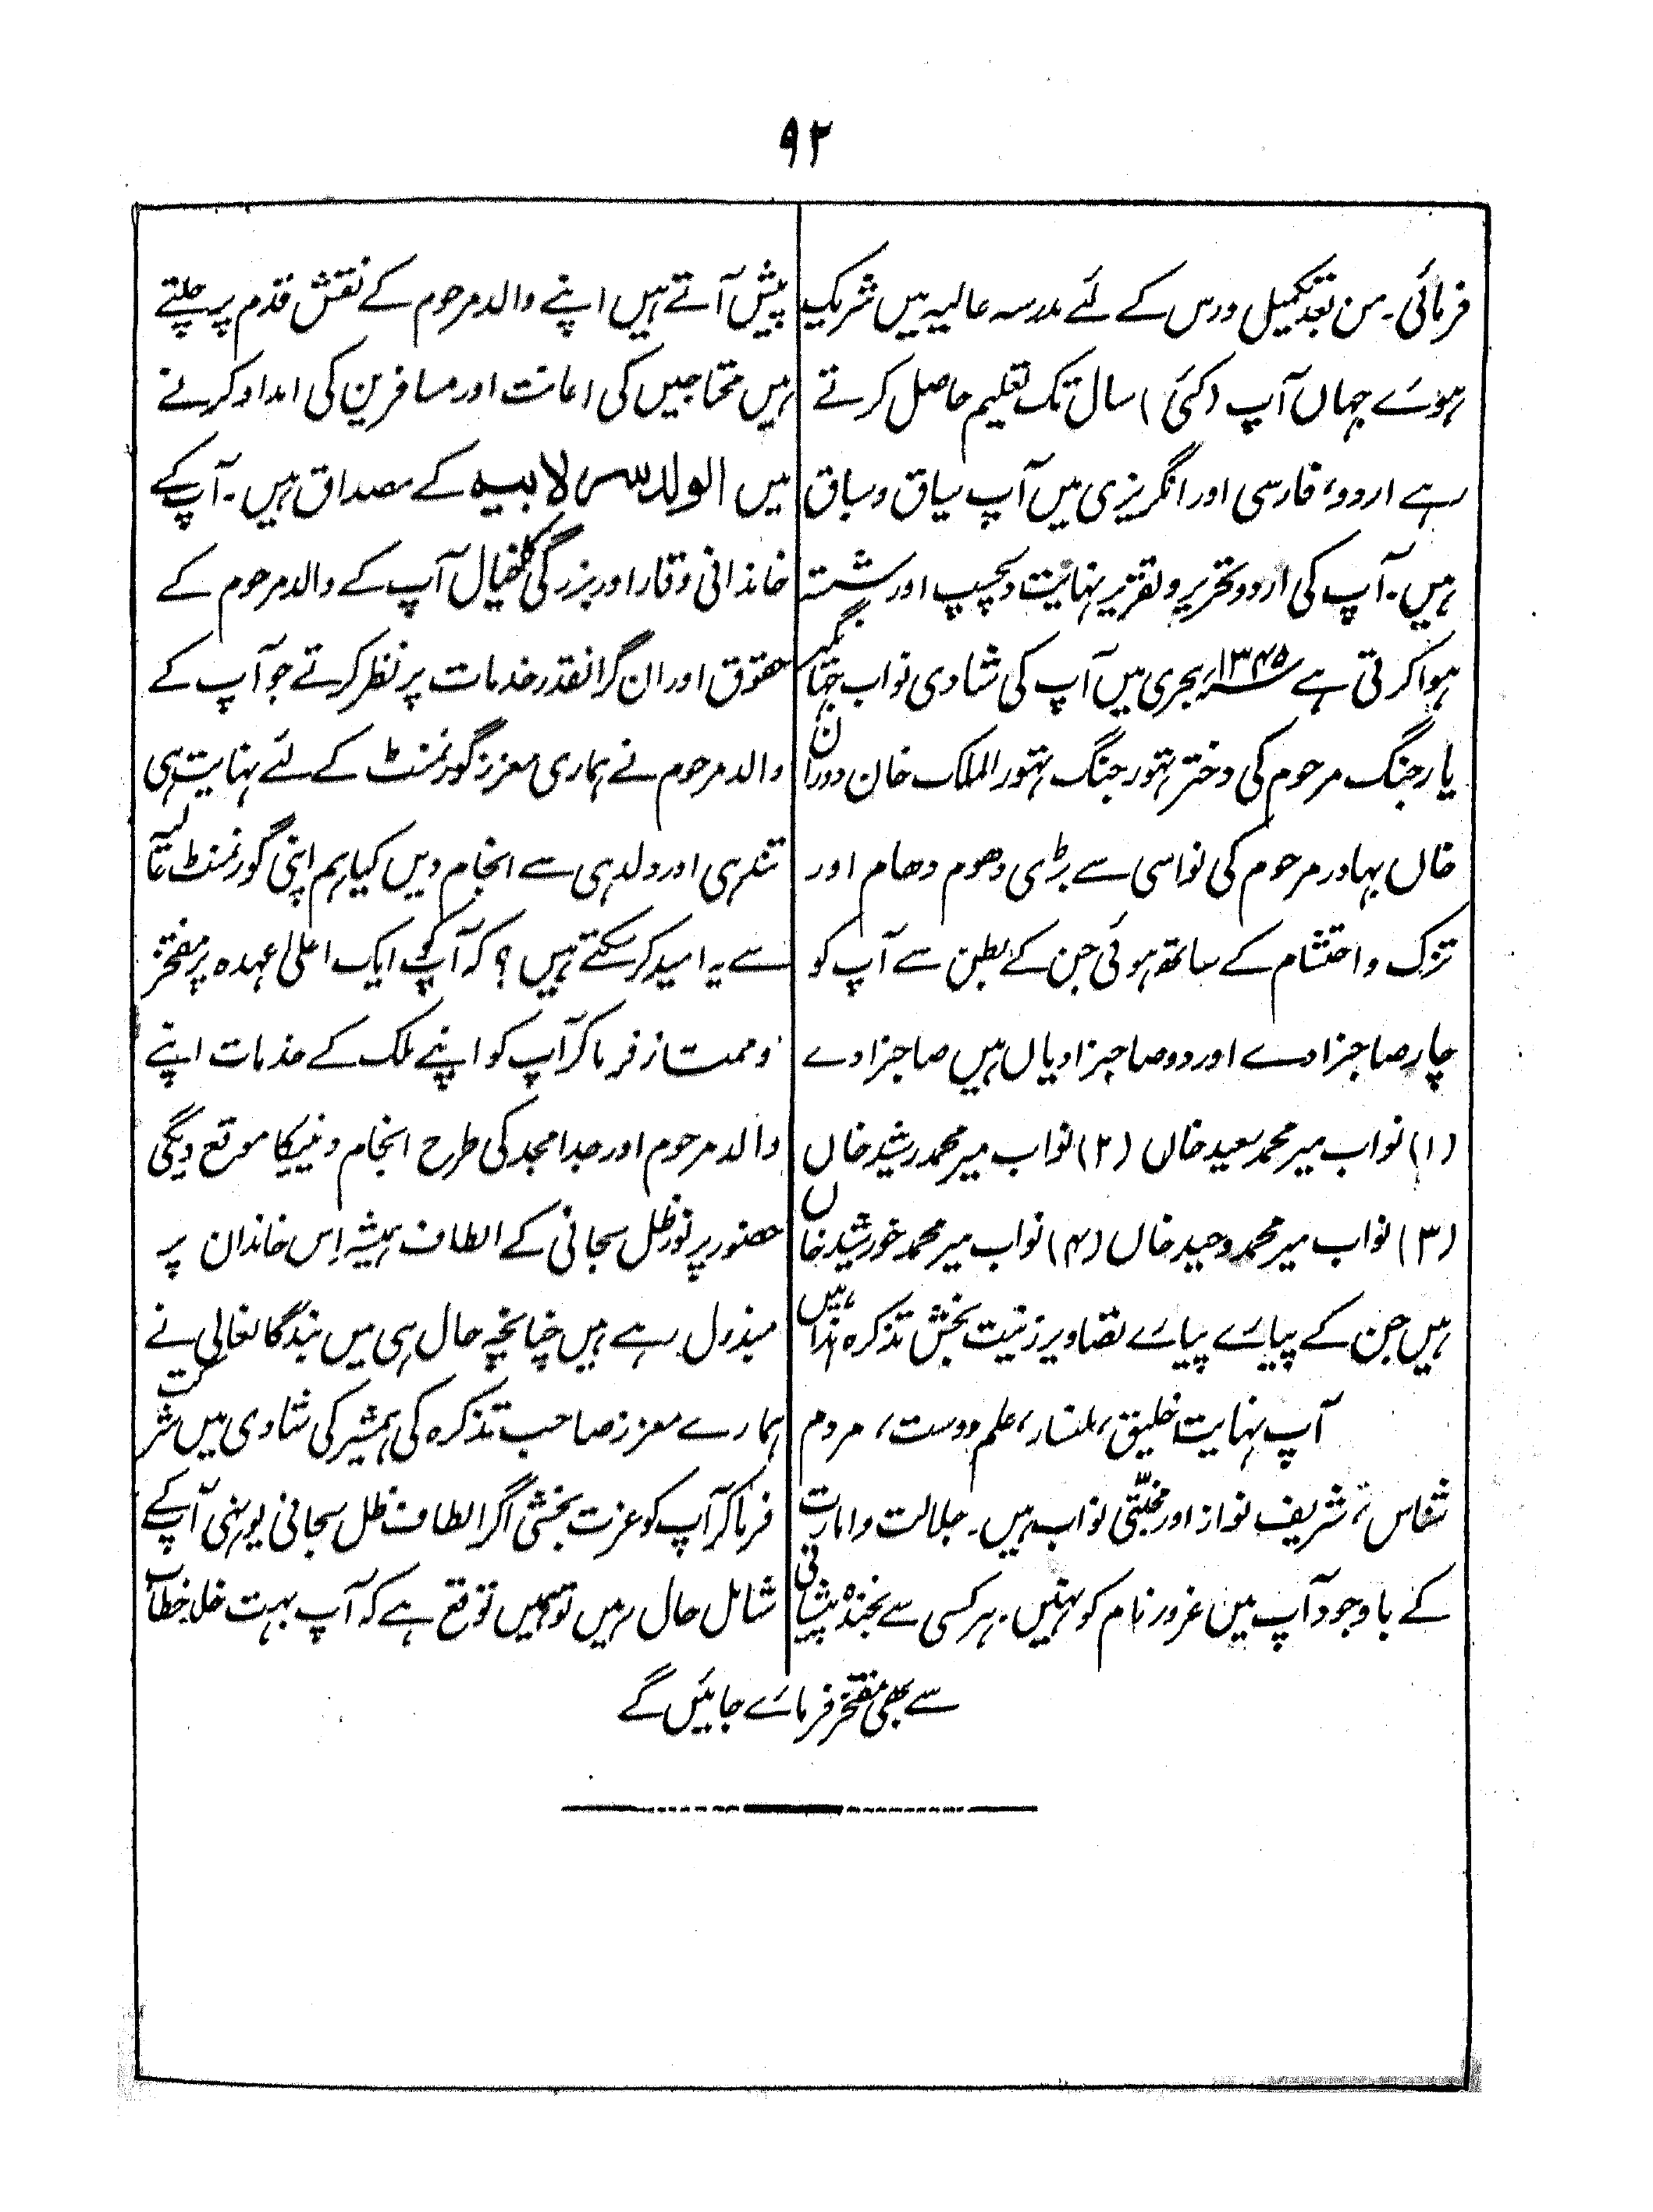 ۹۲
فرمائی۔ من بعد تکمیل درس کے لئے مدرسہ عالیہ میں شریک
ہوئے جہاں آپ (کئی) سال تک تعلیم حاصل کرتے
رہے اردو، فارسی اور انگریزی میں آپ سیاق و سباق
ہیں۔ آپ کی اردو تحریر و تقریر نہایت دلچسپ اور شستہ
ہوا کرتی ہے ۱۳۴۵؁ ہجری میں آپ کی شادی نواب جہانگیر
یار جنگ مرحوم کی دختر تہور جنگ تہور الملک خان دوران
خاں بہادر مرحوم کی نواسی سے بڑی دھوم دھام اور
تزک و احتشام کے ساتھ ہوئی جن کے بطن سے آپ کو
چار صاجزادے اور دو صاجزادیاں ہیں صاجزادے
(۱) نواب میر محمد سعید خاں (۲) نواب میر محمد رشید خاں
(۳) نواب میر محمد وحید خاں (۴) نواب میر محمد خورشید خاں
ہیں جن کے پیارے پیارے تصاویر زینت بخش تذکرہ ہذا ہیں،
آپ نہایت خلیق، ملنسار، علم دوست، مردم
شناس، شریف نواز اور مخیّر نواب ہیں۔ جلالت و امارت
کے باوجود آپ میں غرور نام کو نہیں۔ ہر کسی سے بخندہ پیشانی
پیش آتے ہیں اپنے والد مرحوم کے نقش قدم پر چلتے
ہیں محتاجیں کی اعانت اور مسافرین کی امداد کرنے
میں الولد سر لابیہ کے مصداق ہیں۔ آپ کے
خاندانی وقار اور بزرگی کا خیال آپ کے والد مرحوم کے
حقوق اور ان گرانقدر خدمات پر نظر کرتے جو آپ کے
والد مرحوم نے ہماری معزز گورنمنٹ کے لئے نہایت ہی
تندہی اور دلدہی سے انجام دیں کیا ہم اپنی گورنمنٹ عالیہ
سے یہ امید کر سکتے ہیں؟ کہ آپ کو ایک اعلیٰ عہدہ پر مفتخر
و ممتاز فرما کر آپ کو اپنے ملک کے خدمات اپنے
والد مرحوم اور جد امجد کی طرح انجام دینیکا موقع دیگی
حضور پر نور ظل سبحانی کے الطاف ہمیشہ اِس خاندان پر
مبذول رہے ہیں چنانچہ حال ہی میں بندگانعالی نے
ہمارے معزز صاحب تذکرہ کی ہمشیر کی شادی میں شرکت
فرما کر آپ کو عزت بخشی اگر الطاف ظل سبحانی یونہی آپ کے
شامل حال رہیں تو ہمیں توقع ہے کہ آپ بہت جلد خطاب
سے بھی مفتخر فرمائے جائیں گے